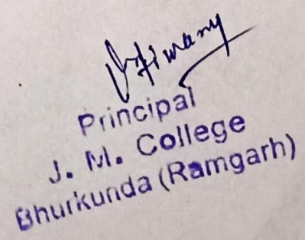 Principal
J. M. College
Bhurkunda (Ramgarh)